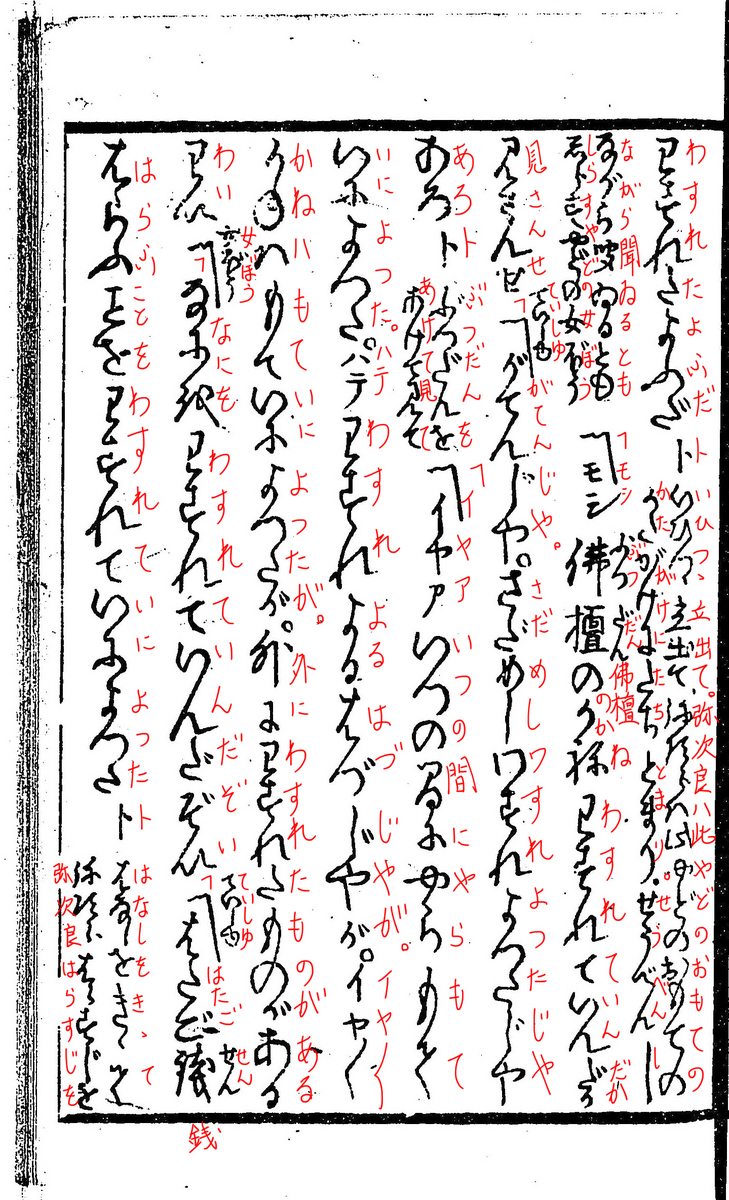 わすれたよふだト いひつゝ立出て。弥次良ハ此やどのおもての
かたがけにたちとまり。せうべんし
ながら聞ゐるとも
しらすやどの女ぼう
「モシ ぶつだん佛檀のかねわすれていんだか
見さんせ ていしゆ「がてんじや。さだめしワすれよつたじや
あろト ぶつだんを
あけて見て
「イヤア いつの間にやらもて
いによつた。ハテわすれよるはづじやが。イヤ〱
かねハもていによつたが。外にわすれたものがある
わい 女ぼう「なにをわすれていんだぞい ていしゆ「はたごせん
銭
はらふことをわすれていによつたト はなしをきゝて
弥次良はらすじを